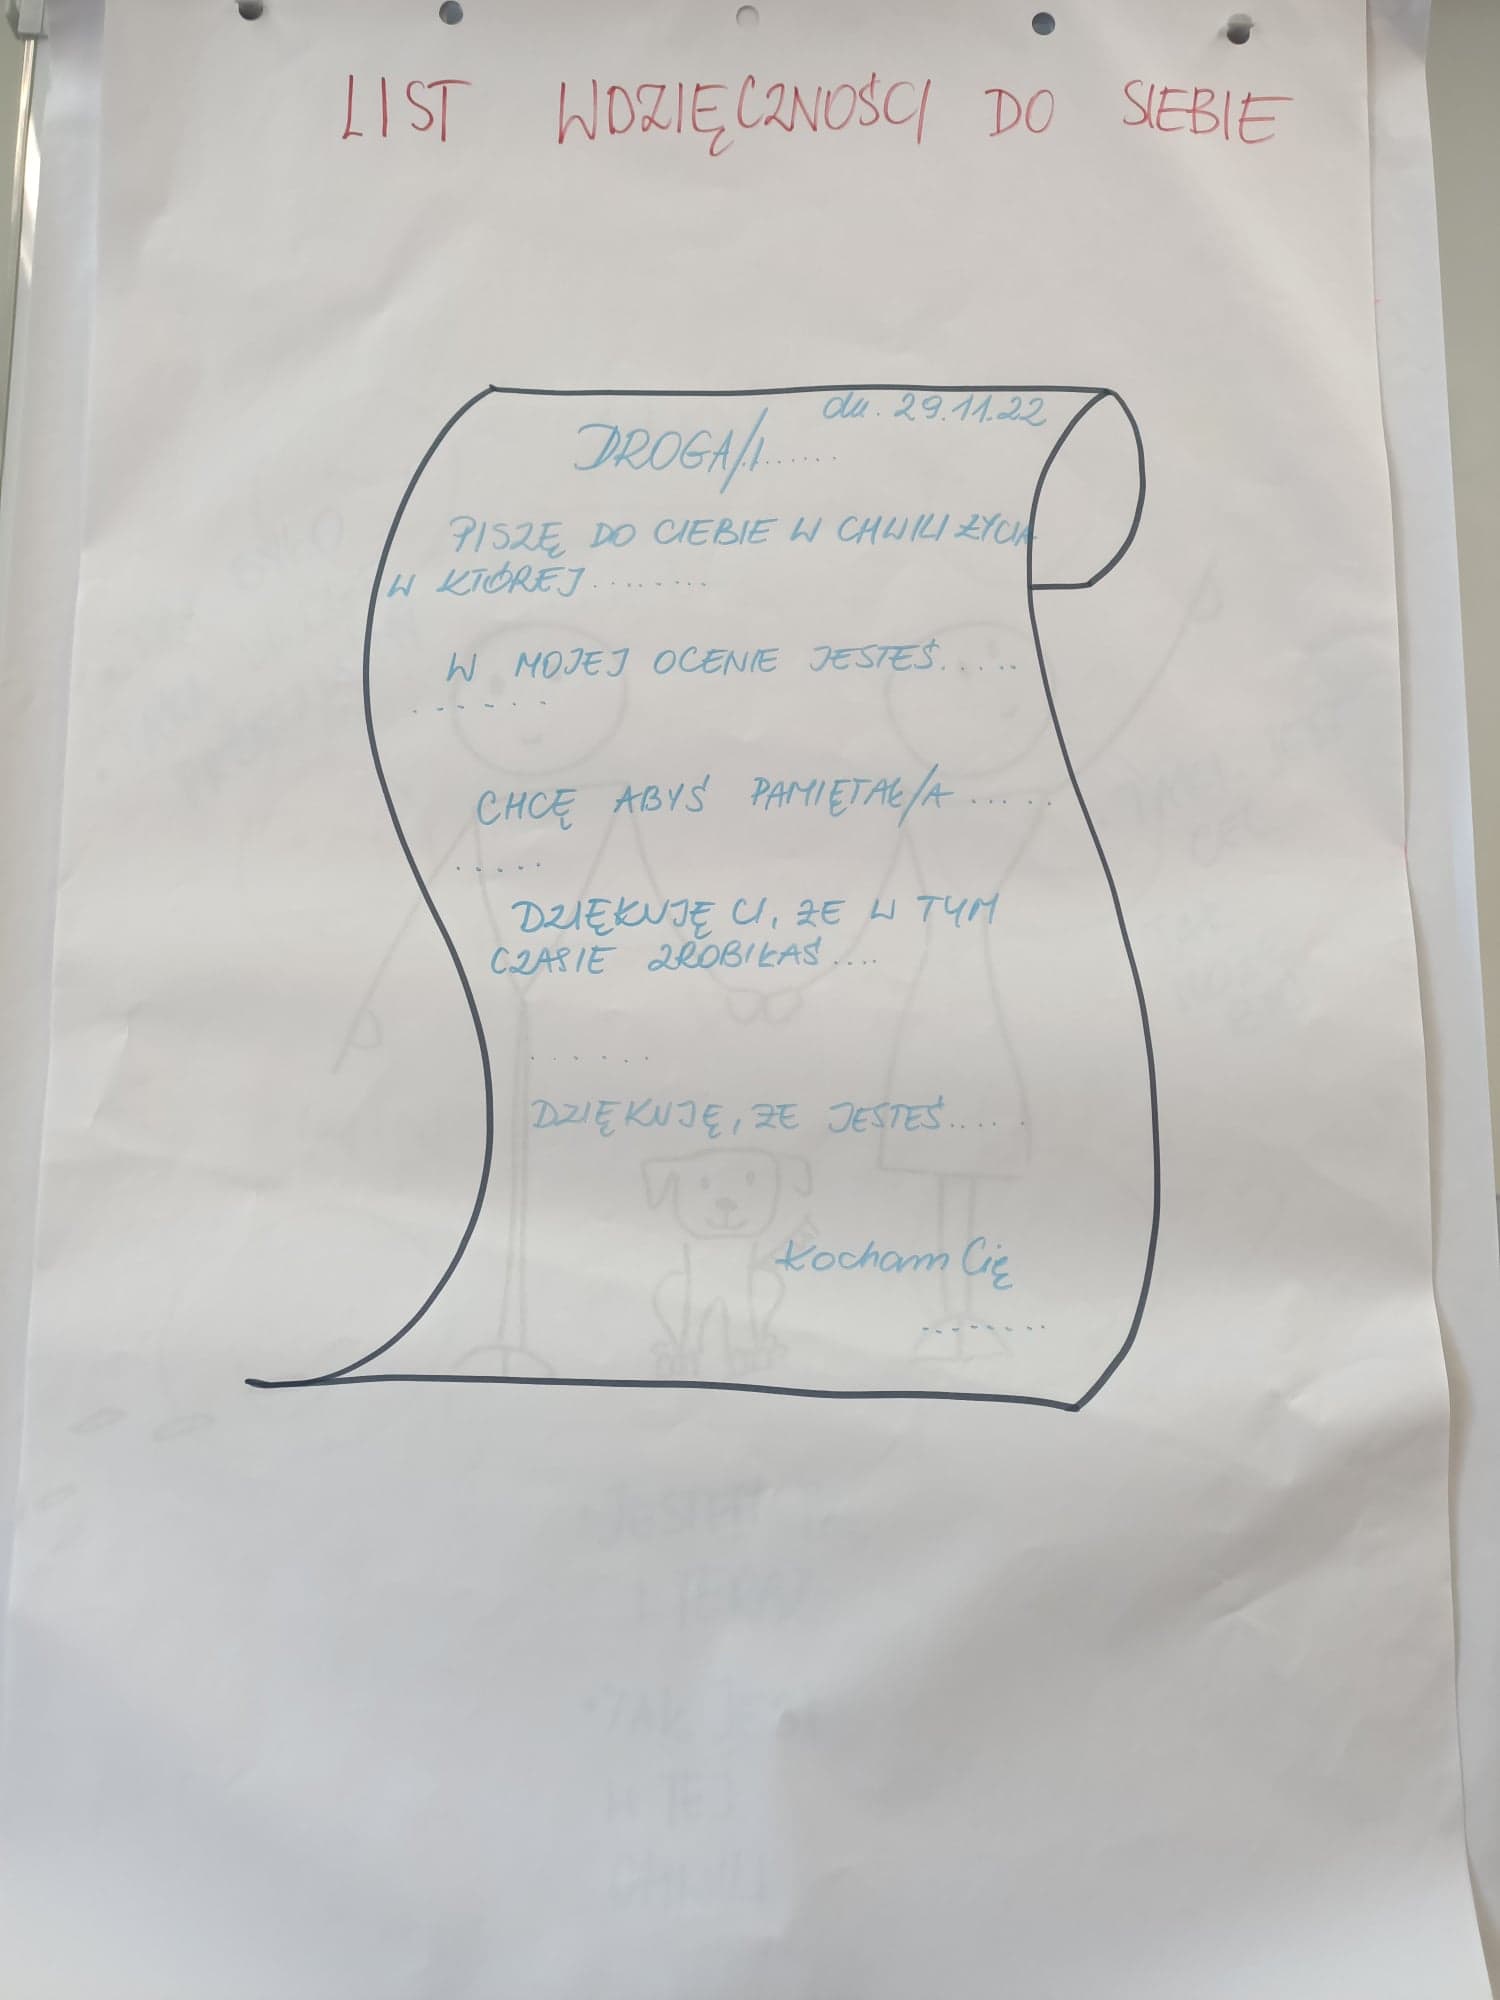 LIST WDZIĘCZNOŚCI DO SIEBIE
dn. 29.11.22
DROGA/I......
PISZĘ DO CIEBIE W CHWILI ŻYCIA
W KTÓREJ........
W MOJEJ OCENIE JESTEŚ.....
......
CHCĘ ABYŚ PAMIĘTAŁ/A.....
.....
DZIĘKUJĘ CI, ŻE W TYM
CZASIE ZROBIŁAŚ....
......
DZIĘKUJĘ, ŻE JESTEŚ.....
Kocham Cię
........